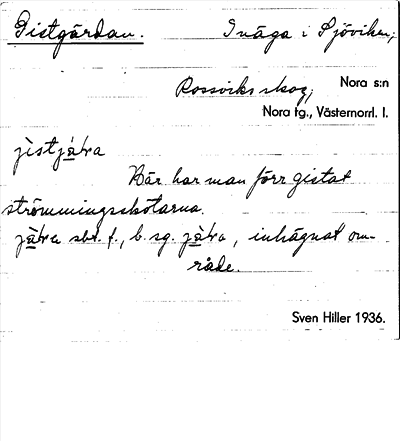 Gistgärdan. Inäga i Sjöviken,
Rossviks skog, Nora s:n
Nora tg., Västernorrl. l.
Här har man förr gistat
strömmingsskötarna.
sbt. f., b. sg. inhägnat om-
råde.
Sven Hiller 1936.